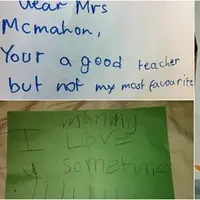 Dear Mrs
Mcmahon,
Your a good teacher
but not my most favourite
mammy
I LOVE
u sometime